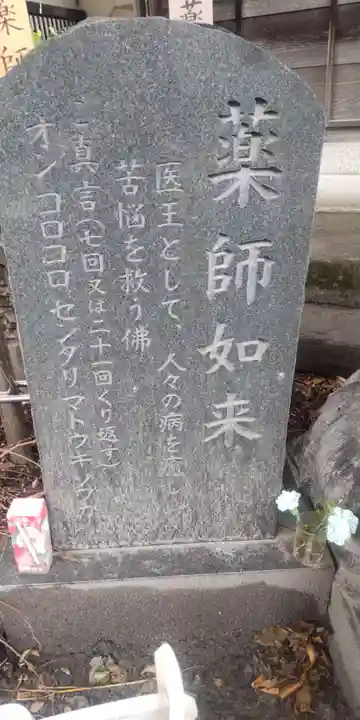 薬師如来
医王として、人々の病を癒し
苦悩を救う佛
ご真言(七回又は二十一回くり返す)
オン コロコロ センダリ マトウギ ソワカ
薬師
薬